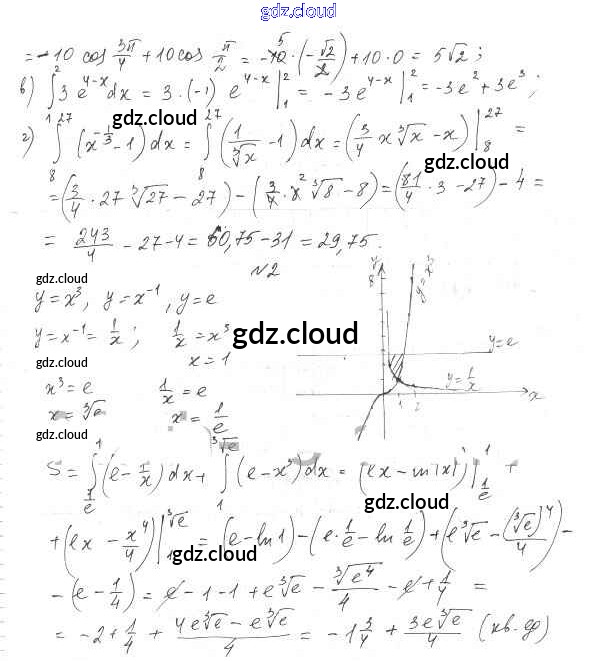 gdz.cloud
= -10 cos 3π/4 + 10 cos π/2 = -10 · (-√2/2) + 10·0 = 5√2 ;
в) ∫₁² 3 e^(4-x) dx = 3·(-1) e^(4-x) |₁² = -3e^(4-x) |₁² = -3e² + 3e³ ;
г) ∫₈²⁷ (x^(-1/3) - 1) dx = ∫₈²⁷ (1/∛x - 1) dx = (3/4 x ∛x - x) |₈²⁷ =
gdz.cloud
gdz.cloud
= (3/4 · 27 ∛27 - 27) - (3/4 · 8 ∛8 - 8) = (81/4 · 3 - 27) - 4 =
= 243/4 - 27 - 4 = 60,75 - 31 = 29,75.
№2
gdz.cloud
y = x³, y = x⁻¹, y = e
y = x⁻¹ = 1/x ; 1/x = x³
gdz.cloud
x = 1
gdz.cloud
x³ = e 1/x = e
x = ∛e x = 1/e
gdz.cloud
y
8
y = x³
y = e
y = 1/x
1 2
x
S = ∫_(1/e)^1 (e - 1/x) dx + ∫₁^(∛e) (e - x³) dx = (ex - ln|x|) |_(1/e)^1 +
gdz.cloud
+ (ex - x⁴/4) |₁^(∛e) = (e - ln 1) - (e · 1/e - ln 1/e) + (e∛e - (∛e)⁴/4) -
gdz.cloud
- (e - 1/4) = e - 1 - 1 + e∛e - ∛e⁴/4 - e + 1/4 =
= -2 + 1/4 + (4e∛e - e∛e)/4 = -1 3/4 + 3e∛e/4 (кв. ед)
gdz.cloud